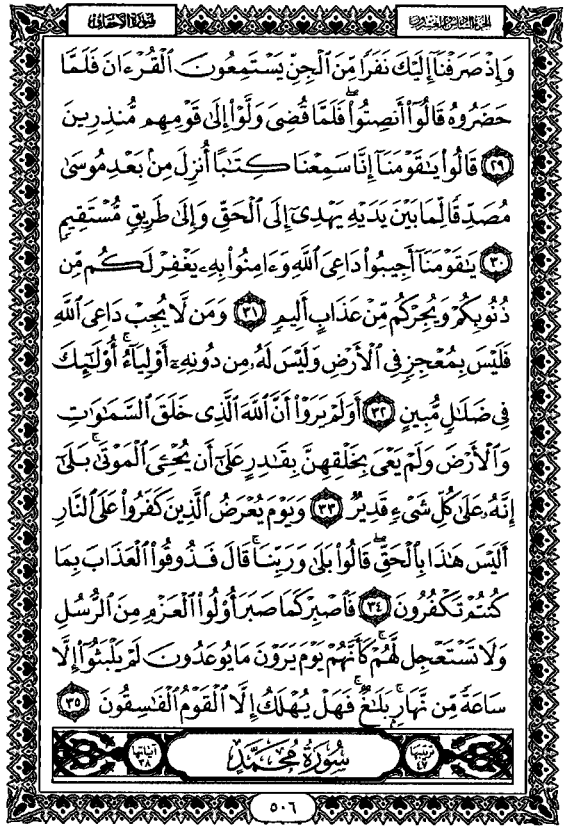 سورة الأحقاف
الجزء السادس والعشرون
وَإِذْ صَرَفْنَآ إِلَيْكَ نَفَرًا مِّنَ ٱلْجِنِّ يَسْتَمِعُونَ ٱلْقُرْءَانَ فَلَمَّا
حَضَرُوهُ قَالُوٓا۟ أَنصِتُوا۟ ۖ فَلَمَّا قُضِىَ وَلَّوْا۟ إِلَىٰ قَوْمِهِم مُّنذِرِينَ
٢٩ قَالُوا۟ يَٰقَوْمَنَآ إِنَّا سَمِعْنَا كِتَٰبًا أُنزِلَ مِنۢ بَعْدِ مُوسَىٰ
مُصَدِّقًا لِّمَا بَيْنَ يَدَيْهِ يَهْدِىٓ إِلَى ٱلْحَقِّ وَإِلَىٰ طَرِيقٍ مُّسْتَقِيمٍ
٣٠ يَٰقَوْمَنَآ أَجِيبُوا۟ دَاعِىَ ٱللَّهِ وَءَامِنُوا۟ بِهِۦ يَغْفِرْ لَكُم مِّن
ذُنُوبِكُمْ وَيُجِرْكُم مِّنْ عَذَابٍ أَلِيمٍ ٣١ وَمَن لَّا يُجِبْ دَاعِىَ ٱللَّهِ
فَلَيْسَ بِمُعْجِزٍ فِى ٱلْأَرْضِ وَلَيْسَ لَهُۥ مِن دُونِهِۦٓ أَوْلِيَآءُ ۚ أُو۟لَٰٓئِكَ
فِى ضَلَٰلٍ مُّبِينٍ ٣٢ أَوَلَمْ يَرَوْا۟ أَنَّ ٱللَّهَ ٱلَّذِى خَلَقَ ٱلسَّمَٰوَٰتِ
وَٱلْأَرْضَ وَلَمْ يَعْىَ بِخَلْقِهِنَّ بِقَٰدِرٍ عَلَىٰٓ أَن يُحْـِۧىَ ٱلْمَوْتَىٰ ۚ بَلَىٰٓ
إِنَّهُۥ عَلَىٰ كُلِّ شَىْءٍ قَدِيرٌ ٣٣ وَيَوْمَ يُعْرَضُ ٱلَّذِينَ كَفَرُوا۟ عَلَى ٱلنَّارِ
أَلَيْسَ هَٰذَا بِٱلْحَقِّ ۖ قَالُوا۟ بَلَىٰ وَرَبِّنَا ۚ قَالَ فَذُوقُوا۟ ٱلْعَذَابَ بِمَا
كُنتُمْ تَكْفُرُونَ ٣٤ فَٱصْبِرْ كَمَا صَبَرَ أُو۟لُوا۟ ٱلْعَزْمِ مِنَ ٱلرُّسُلِ
وَلَا تَسْتَعْجِل لَّهُمْ ۚ كَأَنَّهُمْ يَوْمَ يَرَوْنَ مَا يُوعَدُونَ لَمْ يَلْبَثُوٓا۟ إِلَّا
سَاعَةً مِّن نَّهَارٍۭ ۚ بَلَٰغٌ ۚ فَهَلْ يُهْلَكُ إِلَّا ٱلْقَوْمُ ٱلْفَٰسِقُونَ ٣٥
ترتيبها ٤٧
سُورَةُ مُحَمَّدٍ
آياتها ٣٨
٥٠٦